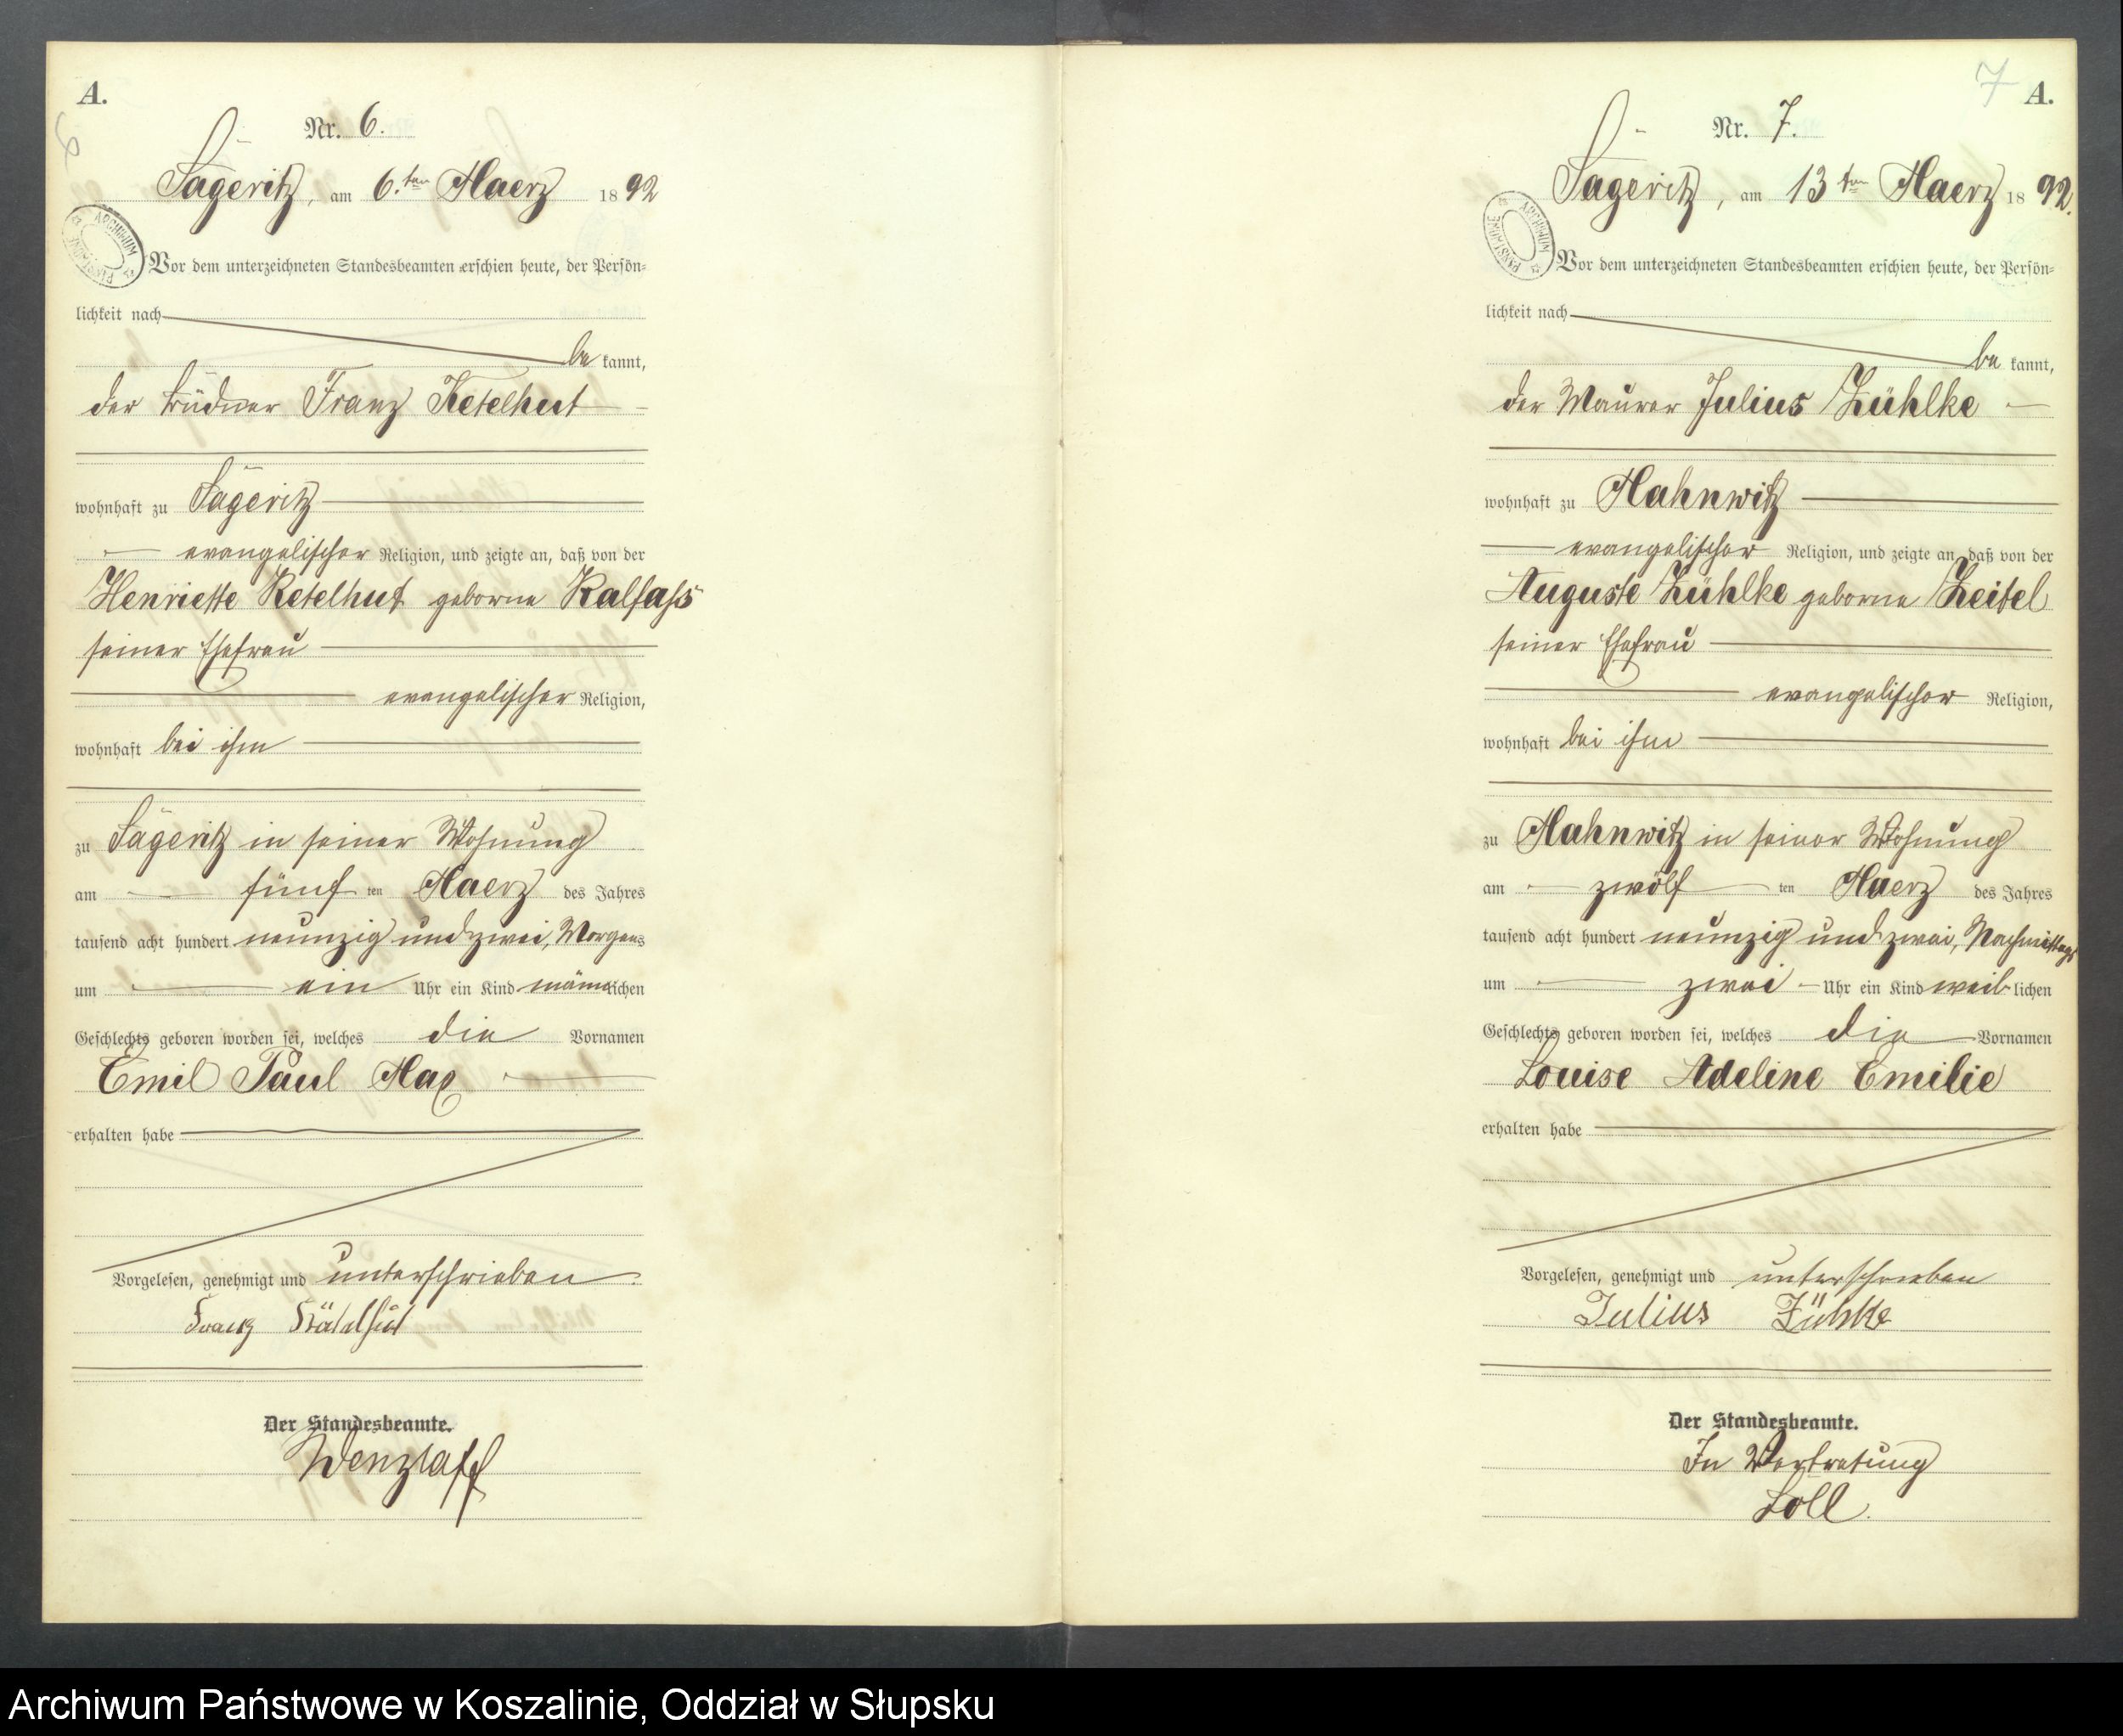 A.
Nr. 6.
Sageritz, am 6.ten Maerz 1892
ARCHIWUM PAŃSTWOWE
Vor dem unterzeichneten Standesbeamten erschien heute, der Persön=
lichkeit nach
be kannt,
der Büdner Franz Ketelhut
wohnhaft zu Sageritz
evangelischer Religion, und zeigte an, daß von der
Henriette Ketelhut geborne Kalfass
seiner Ehefrau
evangelischer Religion,
wohnhaft bei ihm
zu Sageritz in seiner Wohnung
am fünf ten Maerz des Jahres
tausend acht hundert neunzig und zwei, Morgens
um ein Uhr ein Kind männlichen
Geschlechts geboren worden sei, welches die Vornamen
Emil Paul Max
erhalten habe
Vorgelesen, genehmigt und unterschrieben
Franz Kätelhut
Der Standesbeamte.
Wenzlaff
7 A.
Nr. 7.
Sageritz, am 13ten Maerz 1892.
ARCHIWUM PAŃSTWOWE
Vor dem unterzeichneten Standesbeamten erschien heute, der Persön=
lichkeit nach
be kannt,
der Maurer Julius Zühlke
wohnhaft zu Mahnwitz
evangelischer Religion, und zeigte an, daß von der
Auguste Zühlke geborne Zeitel
seiner Ehefrau
evangelischer Religion,
wohnhaft bei ihm
zu Mahnwitz in seiner Wohnung
am zwölf ten Maerz des Jahres
tausend acht hundert neunzig und zwei, Nachmittags
um zwei Uhr ein Kind weiblichen
Geschlechts geboren worden sei, welches die Vornamen
Louise Adeline Emilie
erhalten habe
Vorgelesen, genehmigt und unterschrieben
Julius Zühlke
Der Standesbeamte.
In Vertretung
Loll.
Archiwum Państwowe w Koszalinie, Oddział w Słupsku